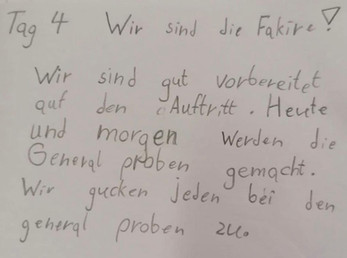 Tag 4 Wir sind die Fakire!
Wir sind gut vorbereitet
auf den Auftritt. Heute
und morgen werden die
General proben gemacht.
Wir gucken jeden bei den
general proben zu.